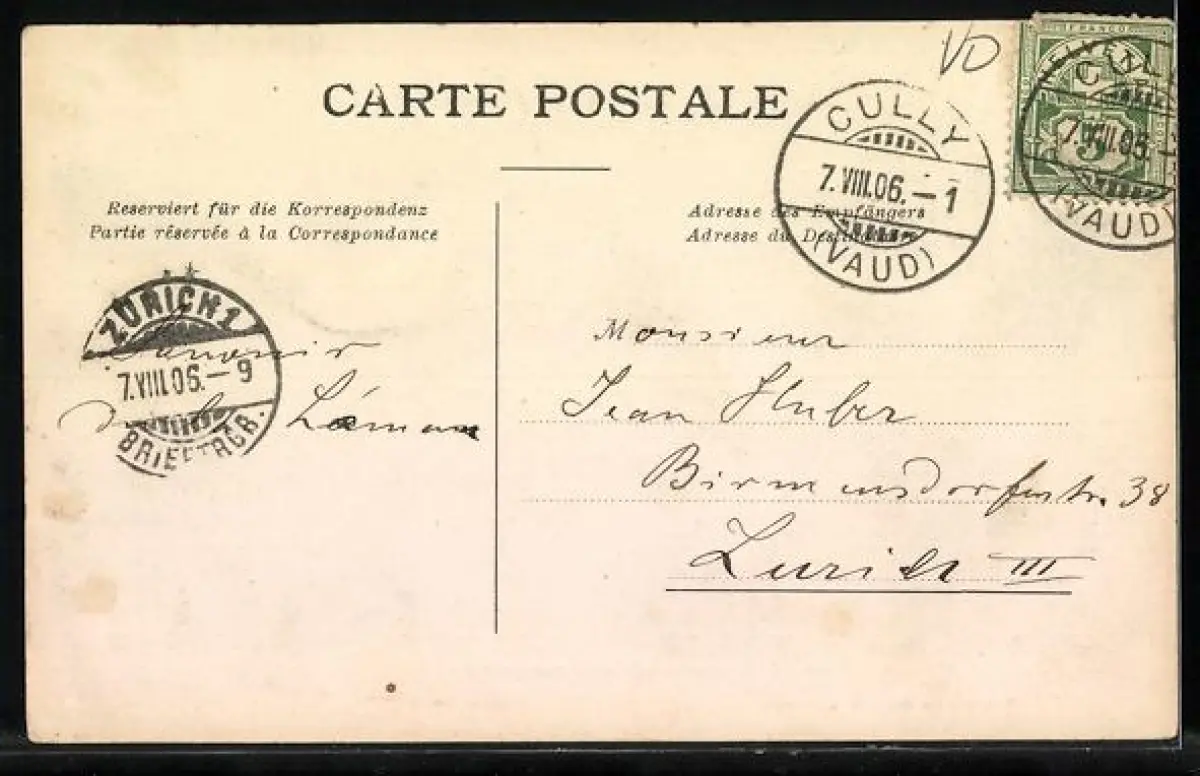 VD
CARTE POSTALE
FRANCO
HELVETIA
5
CULLY
7.VIII.06.-1
(VAUD)
CULLY
7.VIII.06.-1
(VAUD)
Reserviert für die Korrespondenz
Partie réservée à la Correspondance
Adresse des Empfängers
Adresse du Destinataire
ZÜRICH 1
7.VIII.06.-9
BRIEFTRGR.
Souvenir
du Léman
Monsieur
Jean Huber
Birmensdorferstr. 38
Zurich III